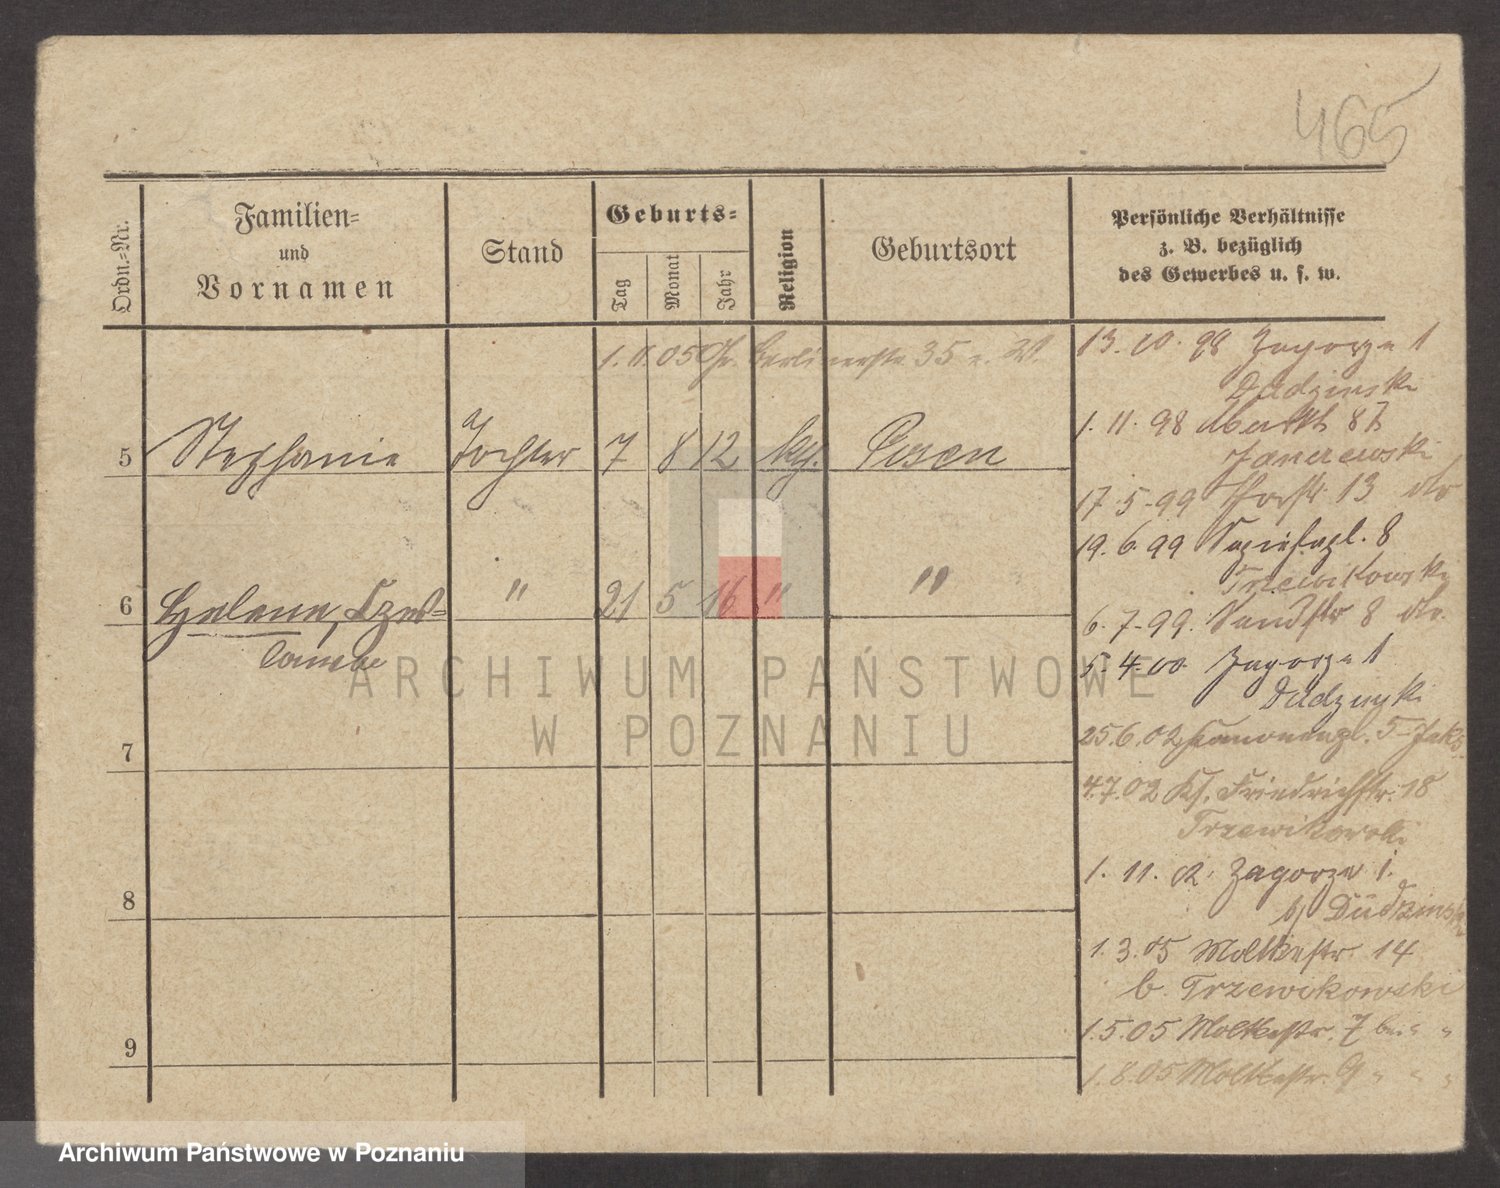 465
Ordn.-Nr.
Familien-
und
Vornamen
Stand
Geburts-
Tag
Monat
Jahr
Religion
Geburtsort
Persönliche Verhältnisse
z. B. bezüglich
des Gewerbes u. s. w.
1. 11. 05 Gr. Berlinerstr. 35 W.
5 Stephanie Tochter 7 8 12 kg. Posen
6 Helene, Czes- " 21 5 16 " "
lawa
7
8
9
13. 10. 98 Zagorze 1
Dudzinski
1. 11. 98 87
Janczewski
17. 5. 99 13 dto
19. 6. 99 Sapiehapl. 8
Trzewikowski
6. 7. 99. Sandstr 8 dto.
5. 4. 00 Zagorze 1
Dudzinski
25. 6. 02 Kanonenpl. 5
4. 7. 02 Kl. Friedrichstr. 18
Trzewikowski
1. 11. 02. Zagorze 1.
bj Dudzinski
1. 3. 05 Moltkestr. 14
b. Trzewikowski
1. 5. 05 Moltkestr. 7 bei " "
1. 8. 05 Moltkestr. 9 " " "
ARCHIWUM PAŃSTWOWE
W POZNANIU
Archiwum Państwowe w Poznaniu